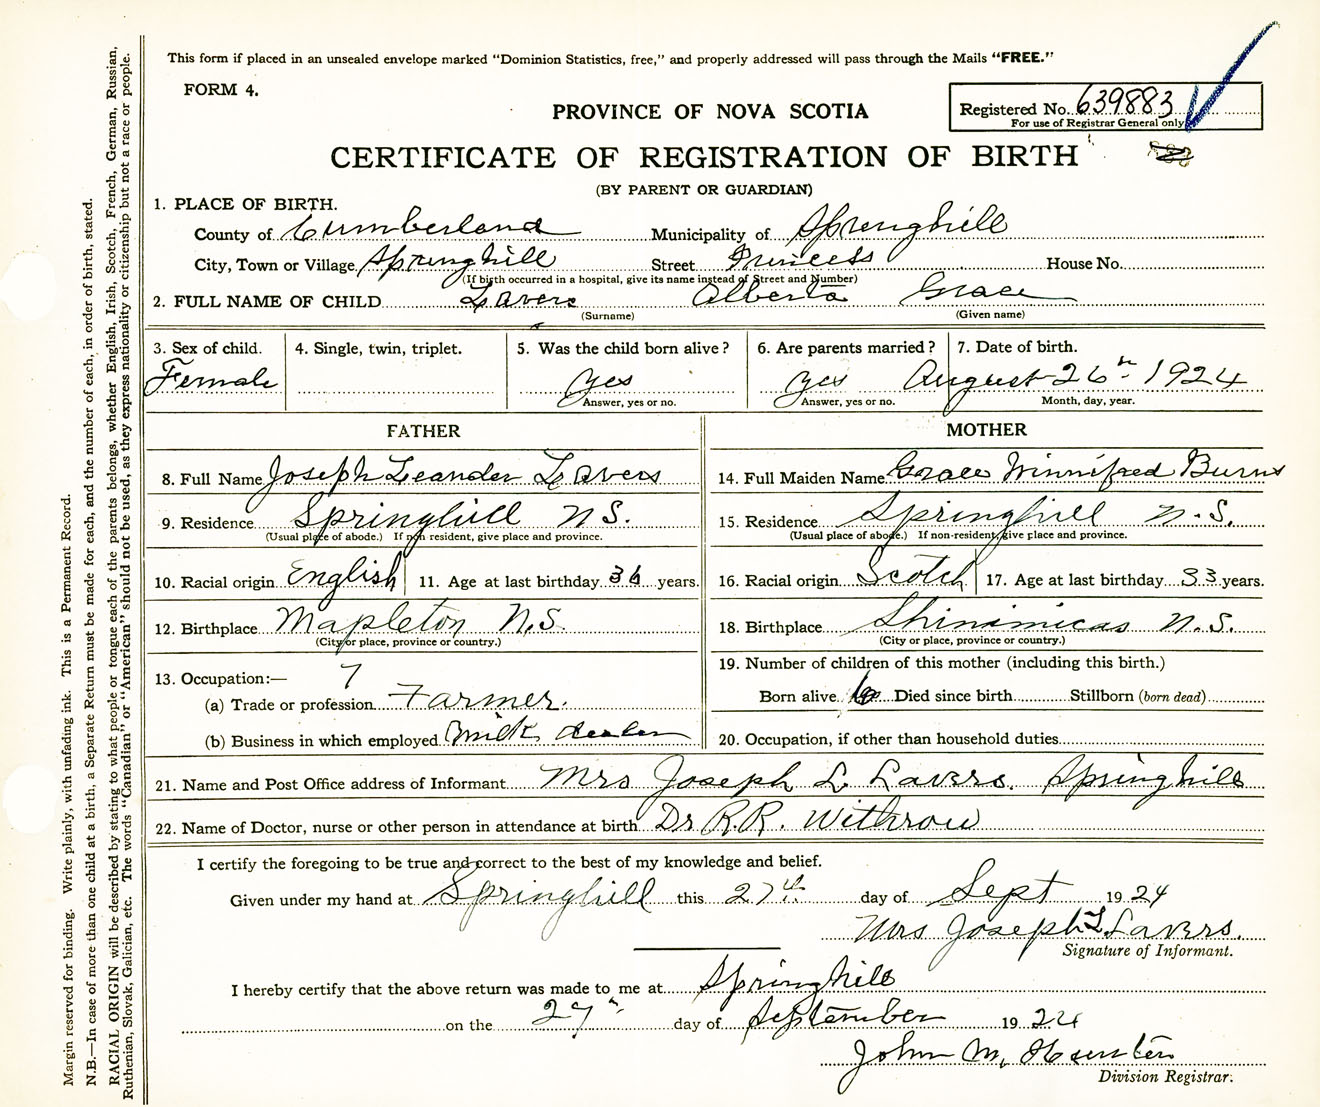 This form if placed in an unsealed envelope marked "Dominion Statistics, free," and properly addressed will pass through the Mails "FREE."
FORM 4.
PROVINCE OF NOVA SCOTIA
Registered No. 639883
For use of Registrar General only
CERTIFICATE OF REGISTRATION OF BIRTH
(BY PARENT OR GUARDIAN)
1. PLACE OF BIRTH.
County of Cumberland Municipality of Springhill
City, Town or Village Springhill Street Princess House No.
(If birth occurred in a hospital, give its name instead of Street and Number)
2. FULL NAME OF CHILD Lavers Alberta Grace
(Surname) (Given name)
3. Sex of child. 4. Single, twin, triplet. 5. Was the child born alive? 6. Are parents married? 7. Date of birth.
Female yes yes August 26th 1924
Answer, yes or no. Answer, yes or no. Month, day, year.
FATHER MOTHER
8. Full Name Joseph Leander Lavers 14. Full Maiden Name Grace Winnifred Burns
9. Residence Springhill N.S. 15. Residence Springhill N.S.
(Usual place of abode.) If non resident, give place and province. (Usual place of abode.) If non-resident, give place and province.
10. Racial origin English 11. Age at last birthday 36 years. 16. Racial origin Scotch 17. Age at last birthday 33 years.
12. Birthplace Mapleton N.S. 18. Birthplace Shinimicas N.S.
(City or place, province or country.) (City or place, province or country.)
13. Occupation:— 7 19. Number of children of this mother (including this birth.)
(a) Trade or profession Farmer. Born alive Died since birth Stillborn (born dead)
(b) Business in which employed Milk dealer 20. Occupation, if other than household duties
21. Name and Post Office address of Informant Mrs Joseph L Lavers. Springhill
22. Name of Doctor, nurse or other person in attendance at birth Dr R.R. Withrow
I certify the foregoing to be true and correct to the best of my knowledge and belief.
Given under my hand at Springhill this 27th day of Sept 1924
Mrs Joseph L Lavers.
Signature of Informant.
I hereby certify that the above return was made to me at Springhill
on the 27th day of September 1924
John M. Hunter
Division Registrar.
Margin reserved for binding. Write plainly, with unfading ink. This is a Permanent Record.
N.B.—In case of more than one child at a birth, a Separate Return must be made for each, and the number of each, in order of birth, stated.
RACIAL ORIGIN will be described by stating to what people or tongue each of the parents belongs, whether English, Irish, Scotch, French, German, Russian,
Ruthenian, Slovak, Galician, etc. The words "Canadian" or "American" should not be used, as they express nationality or citizenship but not a race or people.